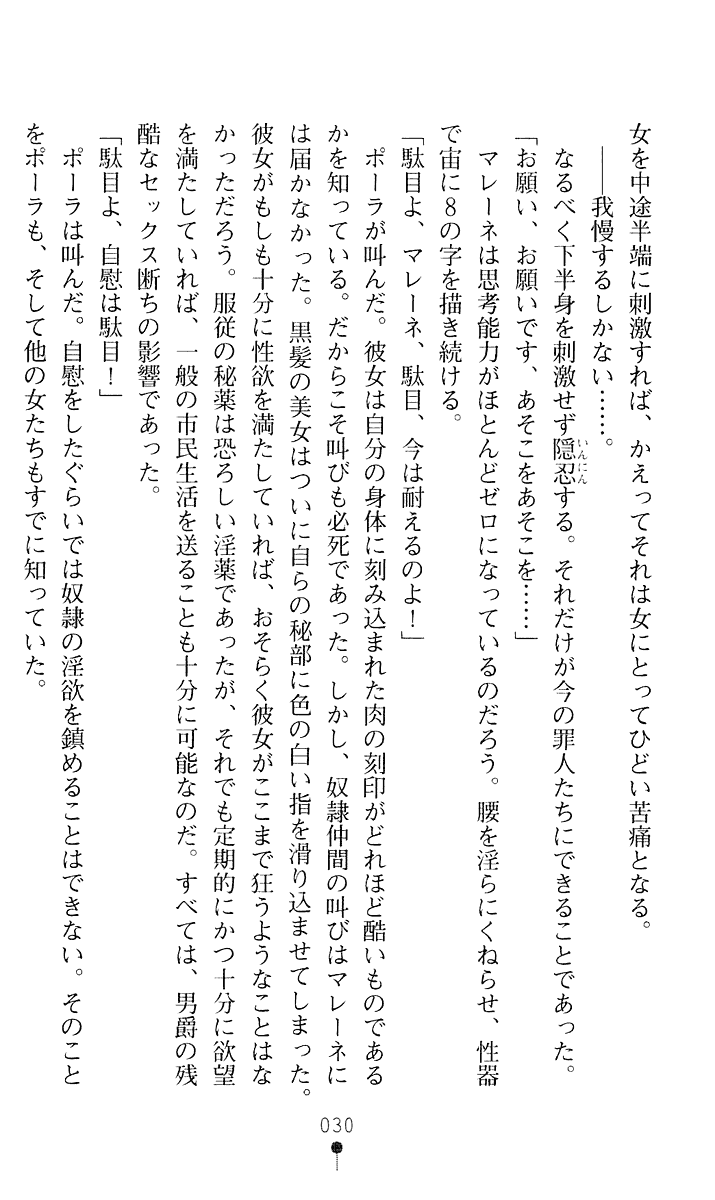 女を中途半端に刺激すれば、かえってそれは女にとってひどい苦痛となる。
――我慢するしかない……。
なるべく下半身を刺激せず隠忍する。それだけが今の罪人たちにできることであった。
いんにん
「お願い、お願いです、あそこをあそこを……」
マレーネは思考能力がほとんどゼロになっているのだろう。腰を淫らにくねらせ、性器
で宙に８の字を描き続ける。
「駄目よ、マレーネ、駄目、今は耐えるのよ！」
ポーラが叫んだ。彼女は自分の身体に刻み込まれた肉の刻印がどれほど酷いものである
かを知っている。だからこそ叫びも必死であった。しかし、奴隷仲間の叫びはマレーネに
は届かなかった。黒髪の美女はついに自らの秘部に色の白い指を滑り込ませてしまった。
彼女がもしも十分に性欲を満たしていれば、おそらく彼女がここまで狂うようなことはな
かっただろう。服従の秘薬は恐ろしい淫薬であったが、それでも定期的にかつ十分に欲望
を満たしていれば、一般の市民生活を送ることも十分に可能なのだ。すべては、男爵の残
酷なセックス断ちの影響であった。
「駄目よ、自慰は駄目！」
ポーラは叫んだ。自慰をしたぐらいでは奴隷の淫欲を鎮めることはできない。そのこと
をポーラも、そして他の女たちもすでに知っていた。
030